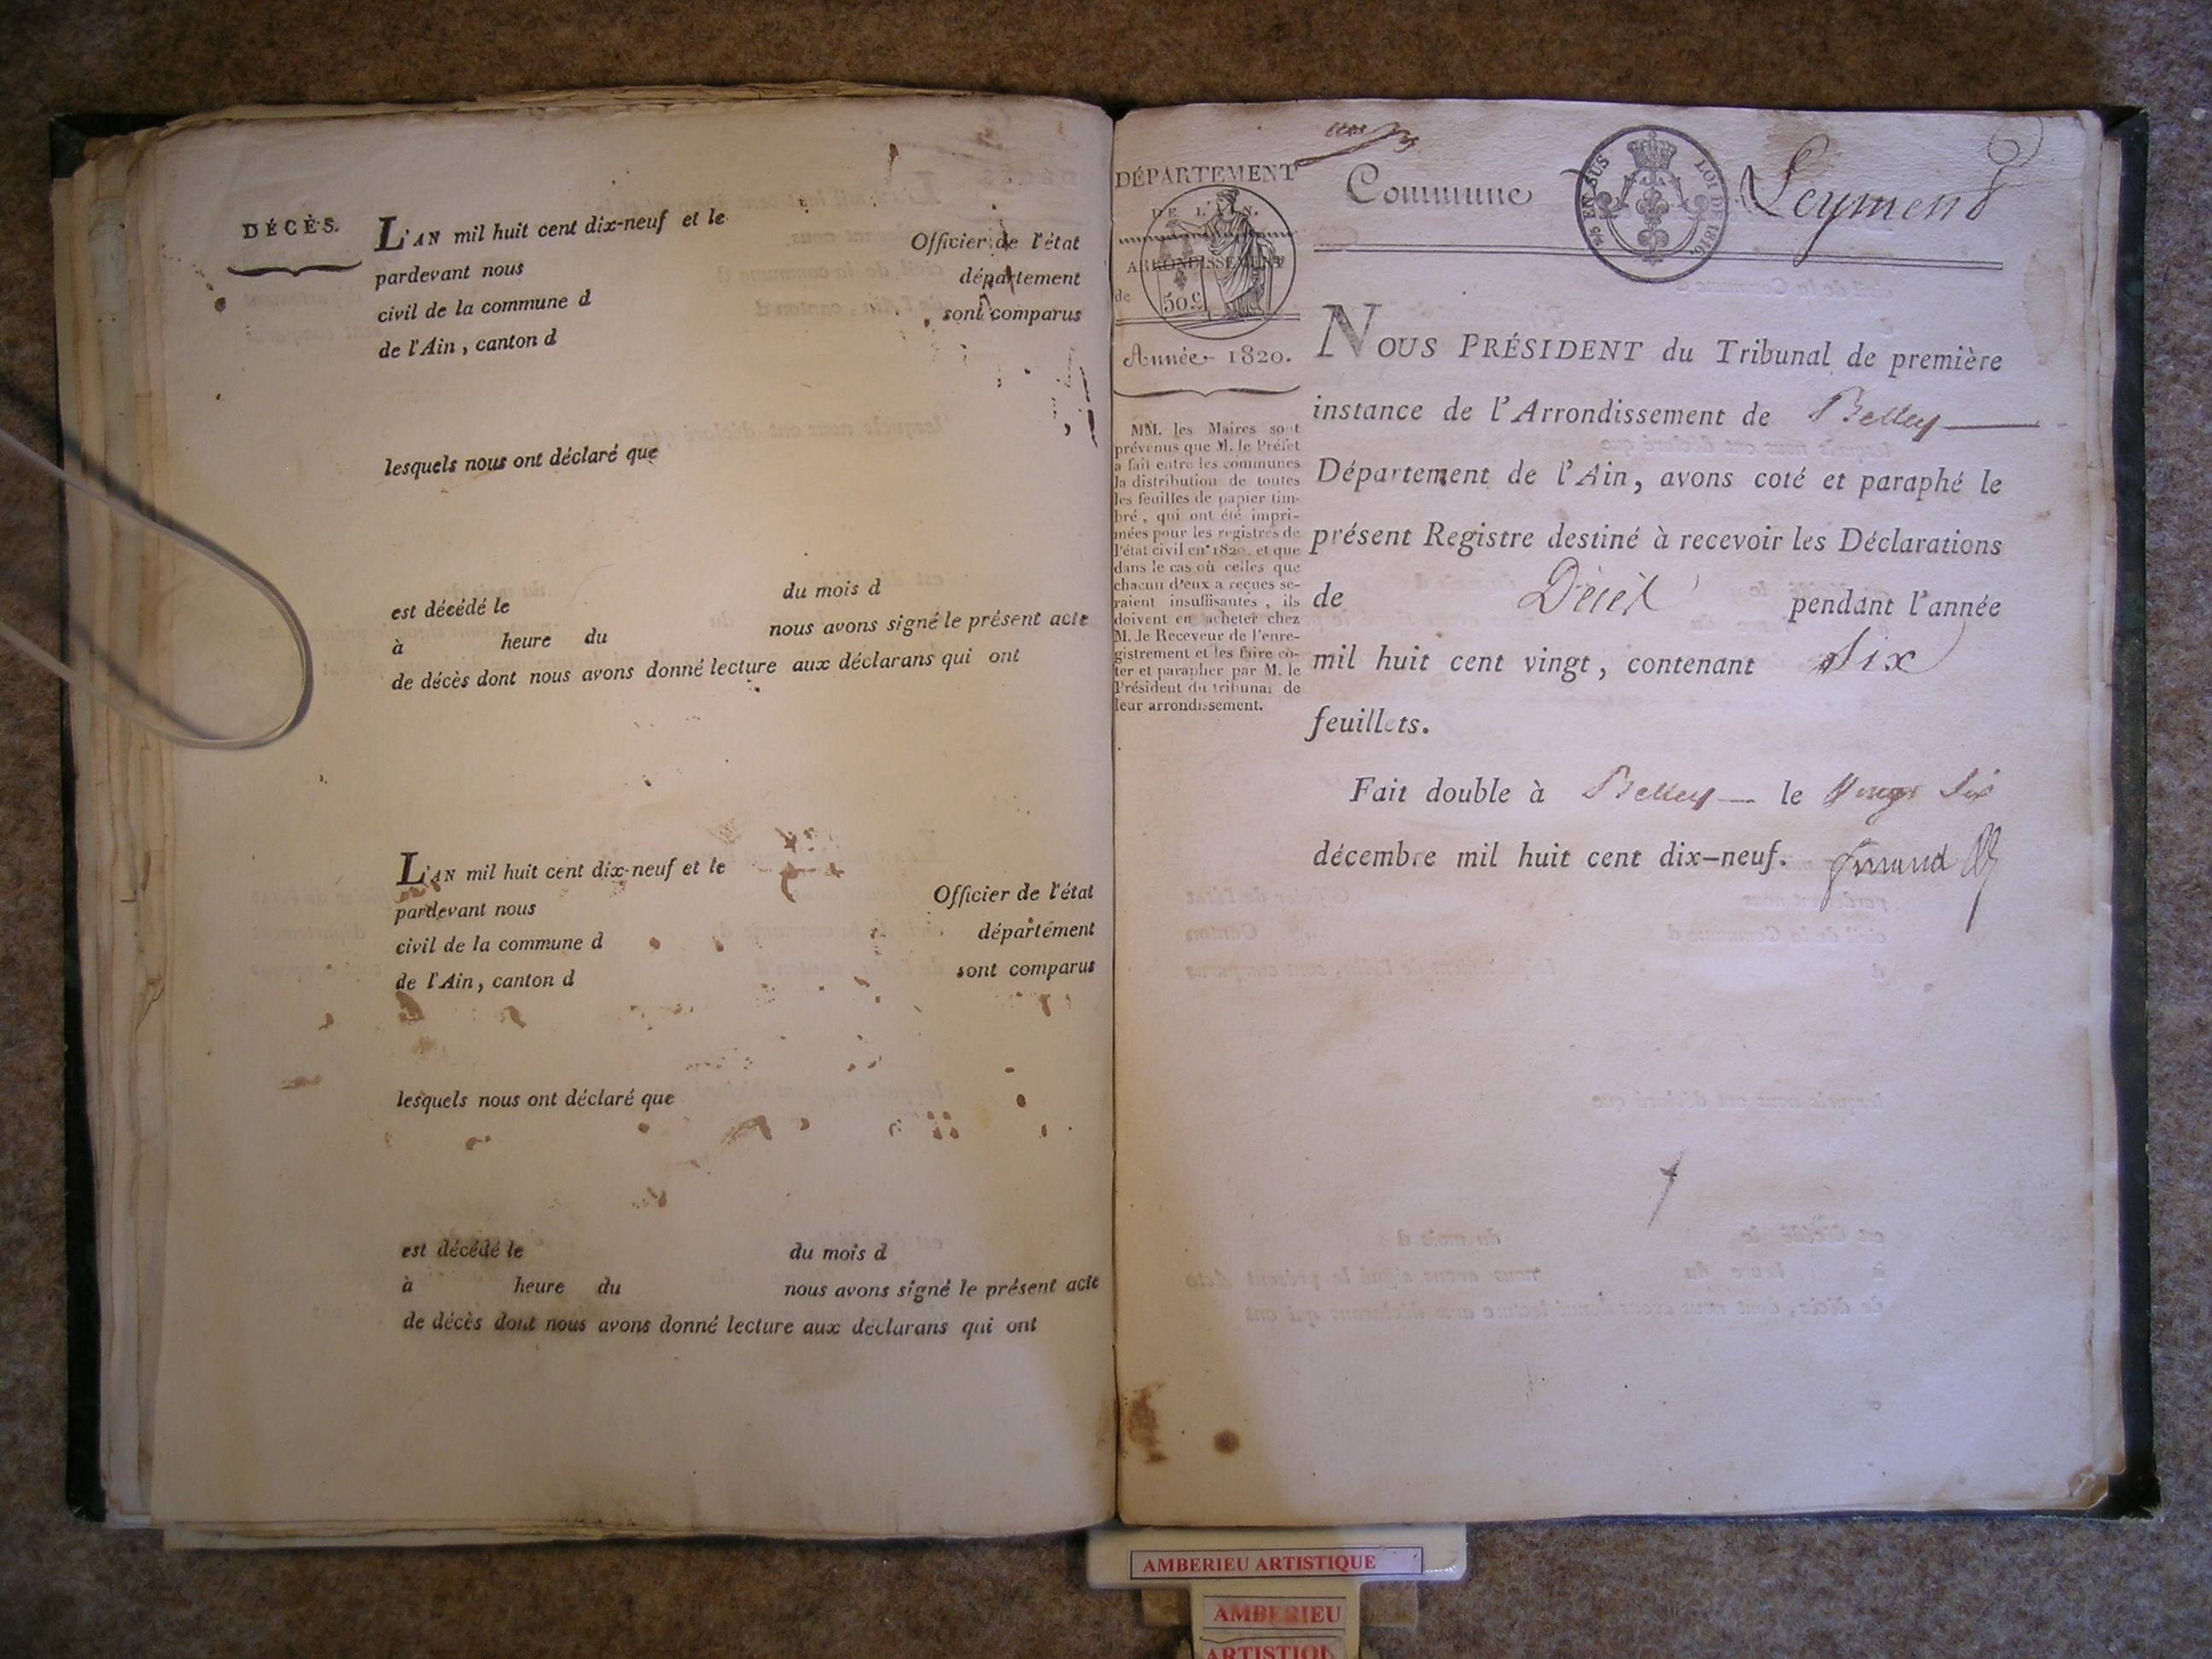 DÉCÈS.
L'AN mil huit cent dix-neuf et le
pardevant nous Officier de l'état
civil de la commune d département
de l'Ain, canton d sont comparus
lesquels nous ont déclaré que
est décédé le du mois d
à heure du nous avons signé le présent acte
de décès dont nous avons donné lecture aux déclarans qui ont
L'AN mil huit cent dix-neuf et le
pardevant nous Officier de l'état
civil de la commune d département
de l'Ain, canton d sont comparus
lesquels nous ont déclaré que
est décédé le du mois d
à heure du nous avons signé le présent acte
de décès dont nous avons donné lecture aux déclarans qui ont
DÉPARTEMENT
DE L'AIN.
ARRONDISSEMENT
de
50 c
Année 1820.
MM. les Maires sont
prévenus que M. le Préfet
a fait entre les communes
la distribution de toutes
les feuilles de papier tim-
bré, qui ont été impri-
mées pour les registres de
l'état civil en 1820, et que
dans le cas où celles que
chacun d'eux a reçues se-
raient insuffisantes, ils
doivent en acheter chez
M. le Receveur de l'enre-
gistrement et les faire co-
ter et parapher par M. le
Président du tribunal de
leur arrondissement.
Commune Leymend
EN SUS LOI DE 1816.
NOUS PRÉSIDENT du Tribunal de première
instance de l'Arrondissement de Belley
Département de l'Ain, avons coté et paraphé le
présent Registre destiné à recevoir les Déclarations
de Décès pendant l'année
mil huit cent vingt, contenant Six
feuillets.
Fait double à Belley le Vingt Six
décembre mil huit cent dix-neuf.
AMBERIEU ARTISTIQUE
AMBERIEU
ARTISTIQU